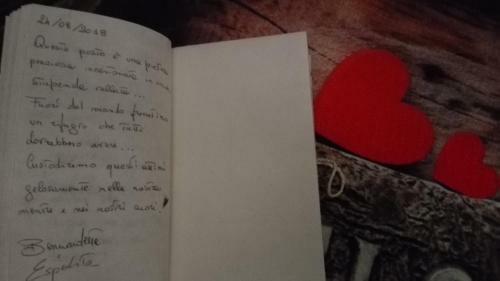 24/08/2018
Questo posto è una pietra
preziosa incastonata in una
stupenda vallata...
Fuori dal mondo frenetico
un rifugio che tutti
dovrebbero avere...
Custodiremo questi attimi
gelosamente nelle nostre
menti e nei nostri cuori!
Bernardette
Espedita